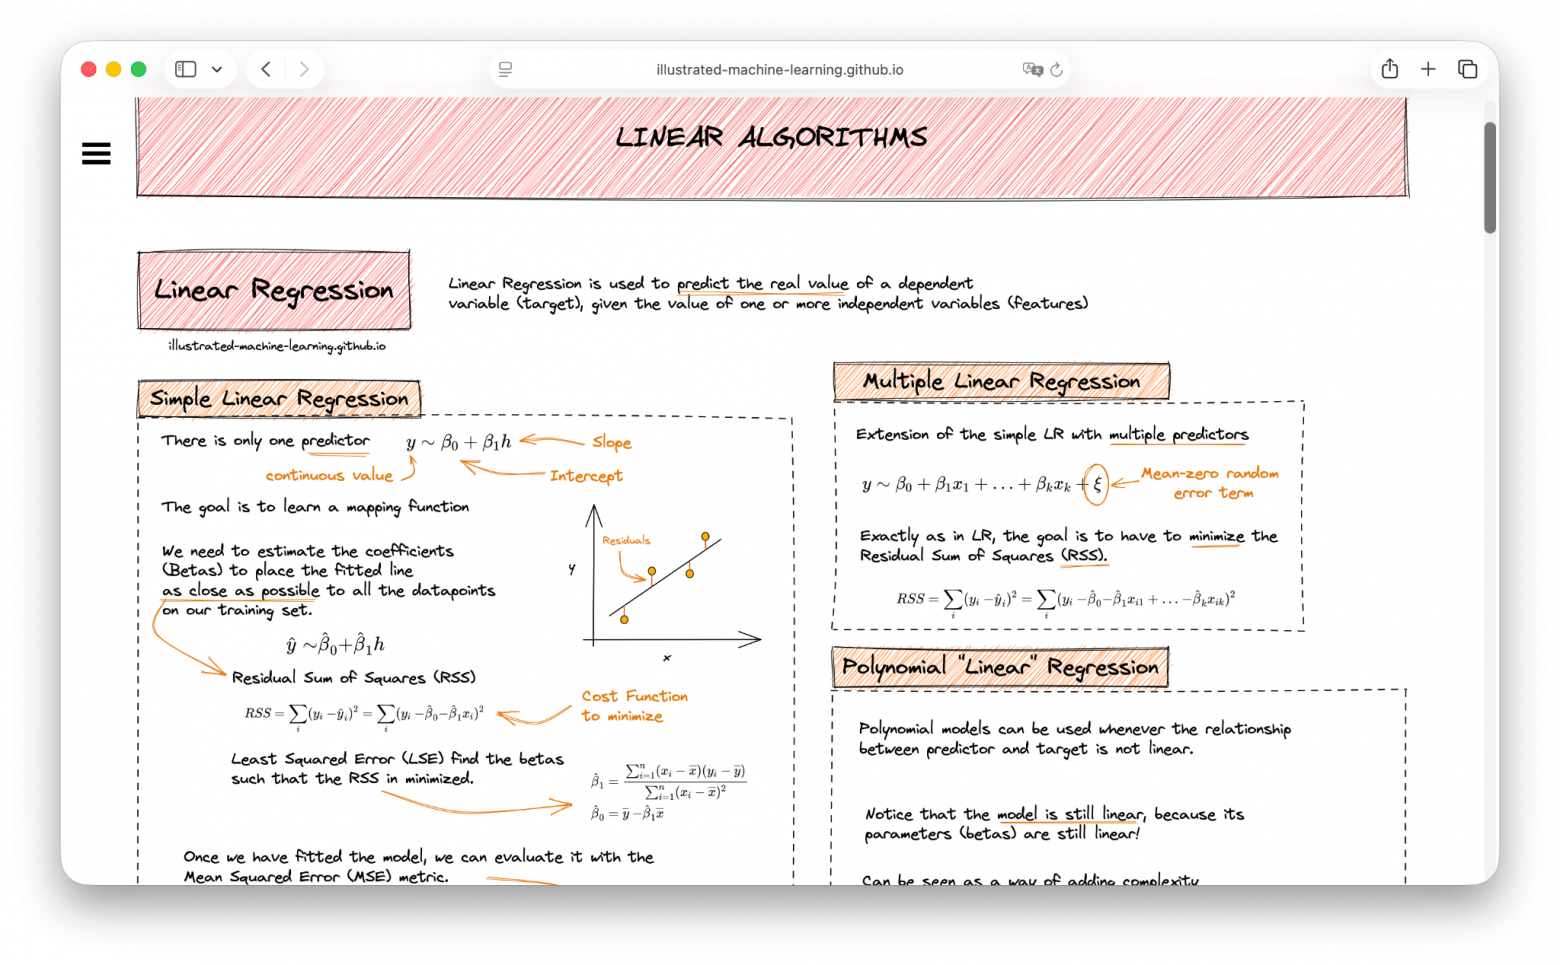 illustrated-machine-learning.github.io
LINEAR ALGORITHMS
Linear Regression
illustrated-machine-learning.github.io
Linear Regression is used to predict the real value of a dependent
variable (target), given the value of one or more independent variables (features)
Simple Linear Regression
There is only one predictor
y ∼ β₀ + β₁h
Slope
continuous value
Intercept
The goal is to learn a mapping function
We need to estimate the coefficients
(Betas) to place the fitted line
as close as possible to all the datapoints
on our training set.
Residuals
y
x
ŷ ∼β̂₀+β̂₁h
Residual Sum of Squares (RSS)
RSS = ∑ᵢ(yᵢ −ŷᵢ)² = ∑ᵢ(yᵢ −β̂₀−β̂₁xᵢ)²
Cost Function
to minimize
Least Squared Error (LSE) find the betas
such that the RSS in minimized.
β̂₁ = ∑ⁿᵢ₌₁(xᵢ − x̅)(yᵢ − y̅) / ∑ⁿᵢ₌₁(xᵢ − x̅)²
β̂₀ = y̅ −β̂₁x̅
Once we have fitted the model, we can evaluate it with the
Mean Squared Error (MSE) metric.
Multiple Linear Regression
Extension of the simple LR with multiple predictors
y ∼ β₀ + β₁x₁ + . . . + βₖxₖ + ξ
Mean-zero random
error term
Exactly as in LR, the goal is to have to minimize the
Residual Sum of Squares (RSS).
RSS = ∑ᵢ(yᵢ −ŷᵢ)² = ∑ᵢ(yᵢ −β̂₀−β̂₁xᵢ₁ + . . . −β̂ₖxᵢₖ)²
Polynomial "Linear" Regression
Polynomial models can be used whenever the relationship
between predictor and target is not linear.
Notice that the model is still linear, because its
parameters (betas) are still linear!
Can be seen as a way of adding complexity